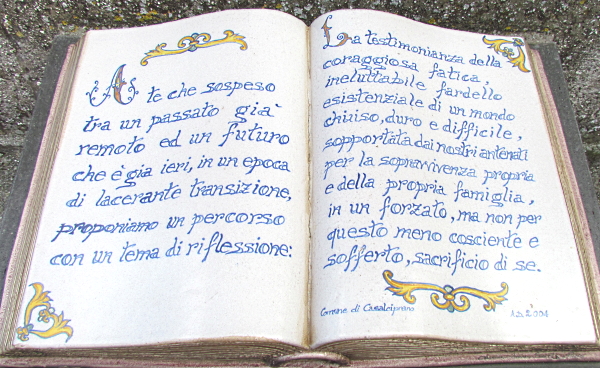 A te che sospeso
tra un passato già
remoto ed un futuro
che è già ieri, in un epoca
di lacerante transizione,
proponiamo un percorso
con un tema di riflessione:
La testimonianza della
coraggiosa fatica,
ineluttabile fardello
esistenziale di un mondo
chiuso, duro e difficile,
sopportata dai nostri antenati
per la sopravvivenza propria
e della propria famiglia,
in un forzato, ma non per
questo meno cosciente e
sofferto, sacrificio di se.
Comune di Casalciprano